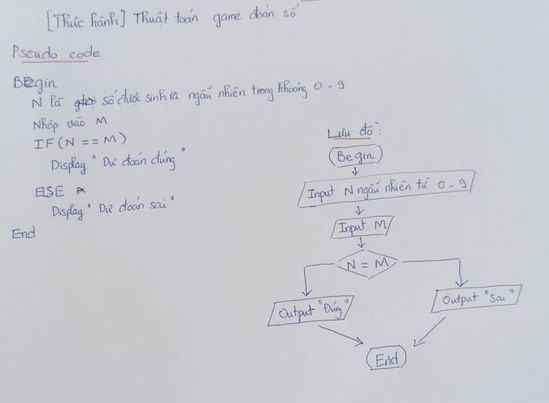 [Thực hành] Thuật toán game đoán số
Pseudo code
Begin
N là số được sinh ra ngẫu nhiên trong khoảng 0 - 9
Nhập vào M
IF (N == M)
Display "Dự đoán đúng"
ELSE
Display "Dự đoán sai"
End
Lưu đồ:
Begin
Input N ngẫu nhiên từ 0 - 9
Input M
N = M
Output "Đúng"
Output "Sai"
End